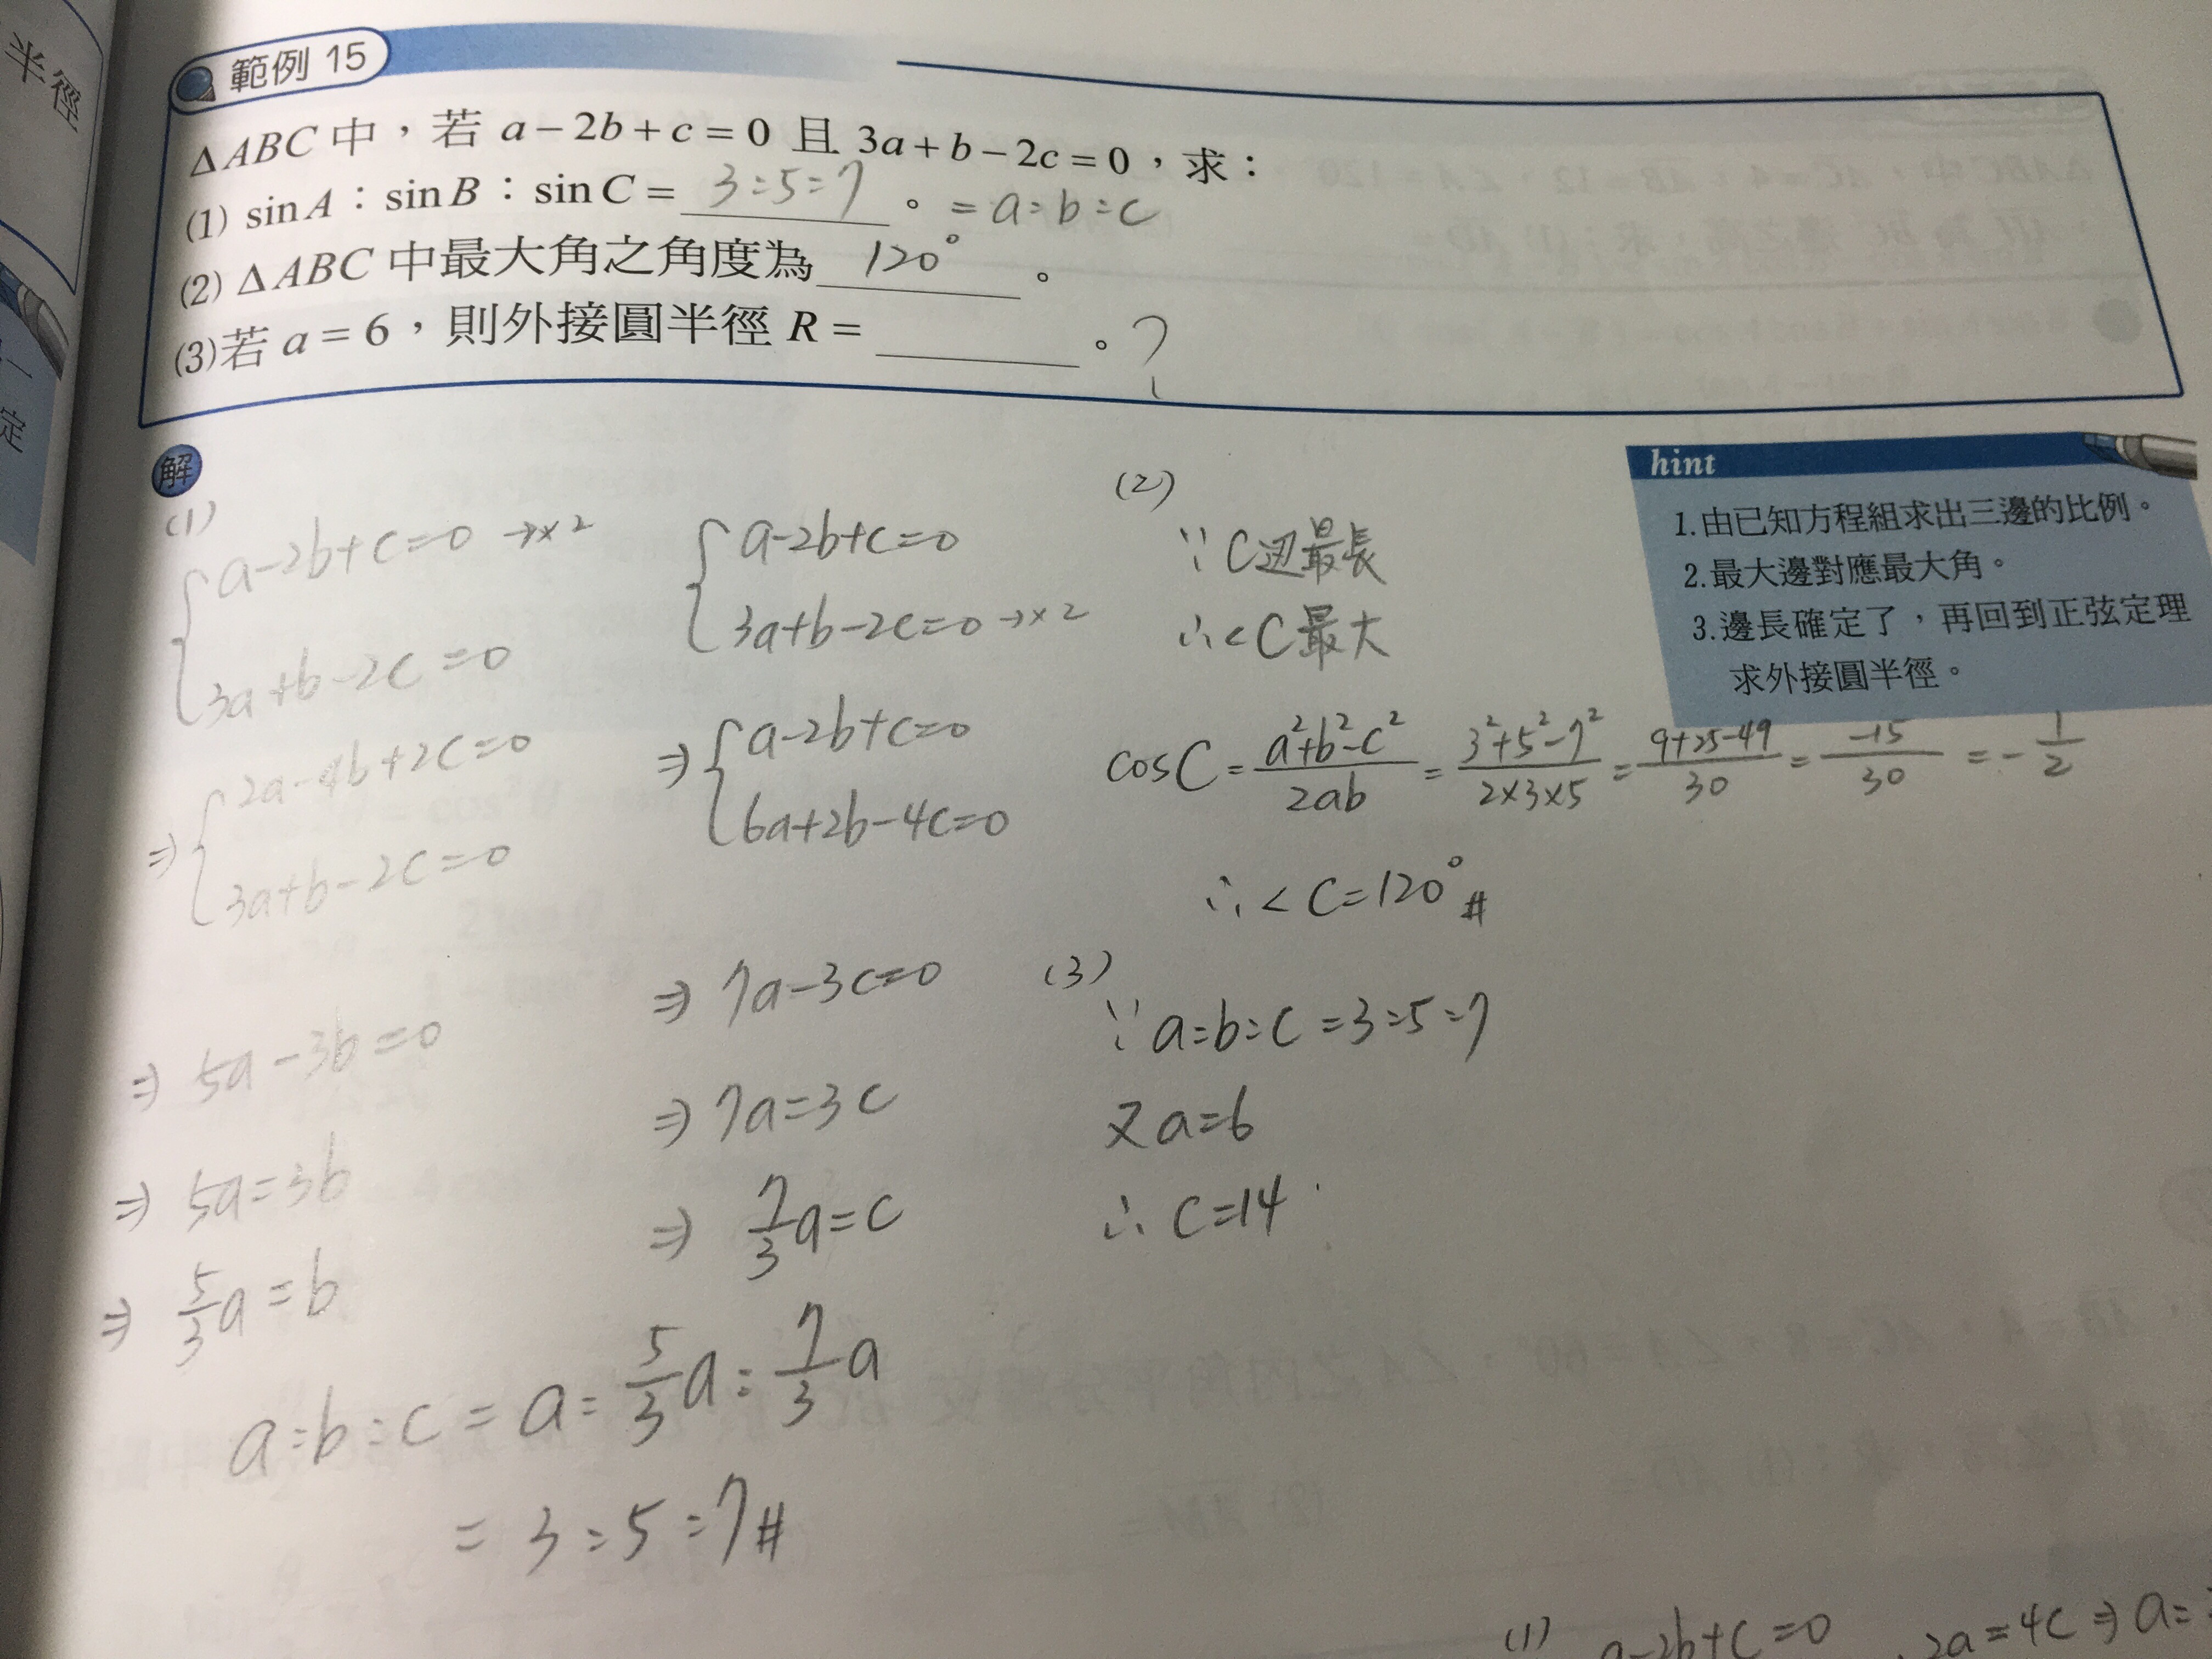 半徑
定
範例 15
△ABC 中，若 a－2b＋c＝0 且 3a＋b－2c＝0，求：
(1) sinA：sinB：sinC＝ 3:5:7 。 = a:b:c
(2) △ABC 中最大角之角度為 120° 。
(3)若 a＝6，則外接圓半徑 R＝ 。?
解
hint
1.由已知方程組求出三邊的比例。
2.最大邊對應最大角。
3.邊長確定了，再回到正弦定理
求外接圓半徑。
(1)
a-2b+c=0 →×2
3a+b-2c=0
⇒ 2a-4b+2c=0
3a+b-2c=0
⇒ 5a-3b=0
⇒ 5a=3b
⇒ 5/3a=b
a-2b+c=0
3a+b-2c=0 →×2
⇒ a-2b+c=0
6a+2b-4c=0
⇒ 7a-3c=0
⇒ 7a=3c
⇒ 7/3a=c
a:b:c = a:5/3a:7/3a
= 3:5:7#
(2)
∵ C边最長
∴ <C最大
cosC = a²+b²-c²/2ab = 3²+5²-7²/2×3×5 = 9+25-49/30 = -15/30 = -1/2
∴ <C=120°#
(3)
∵ a:b:c=3:5:7
又a=6
∴ c=14
(1) a-2b+c=0
2a=4c ⇒ a=